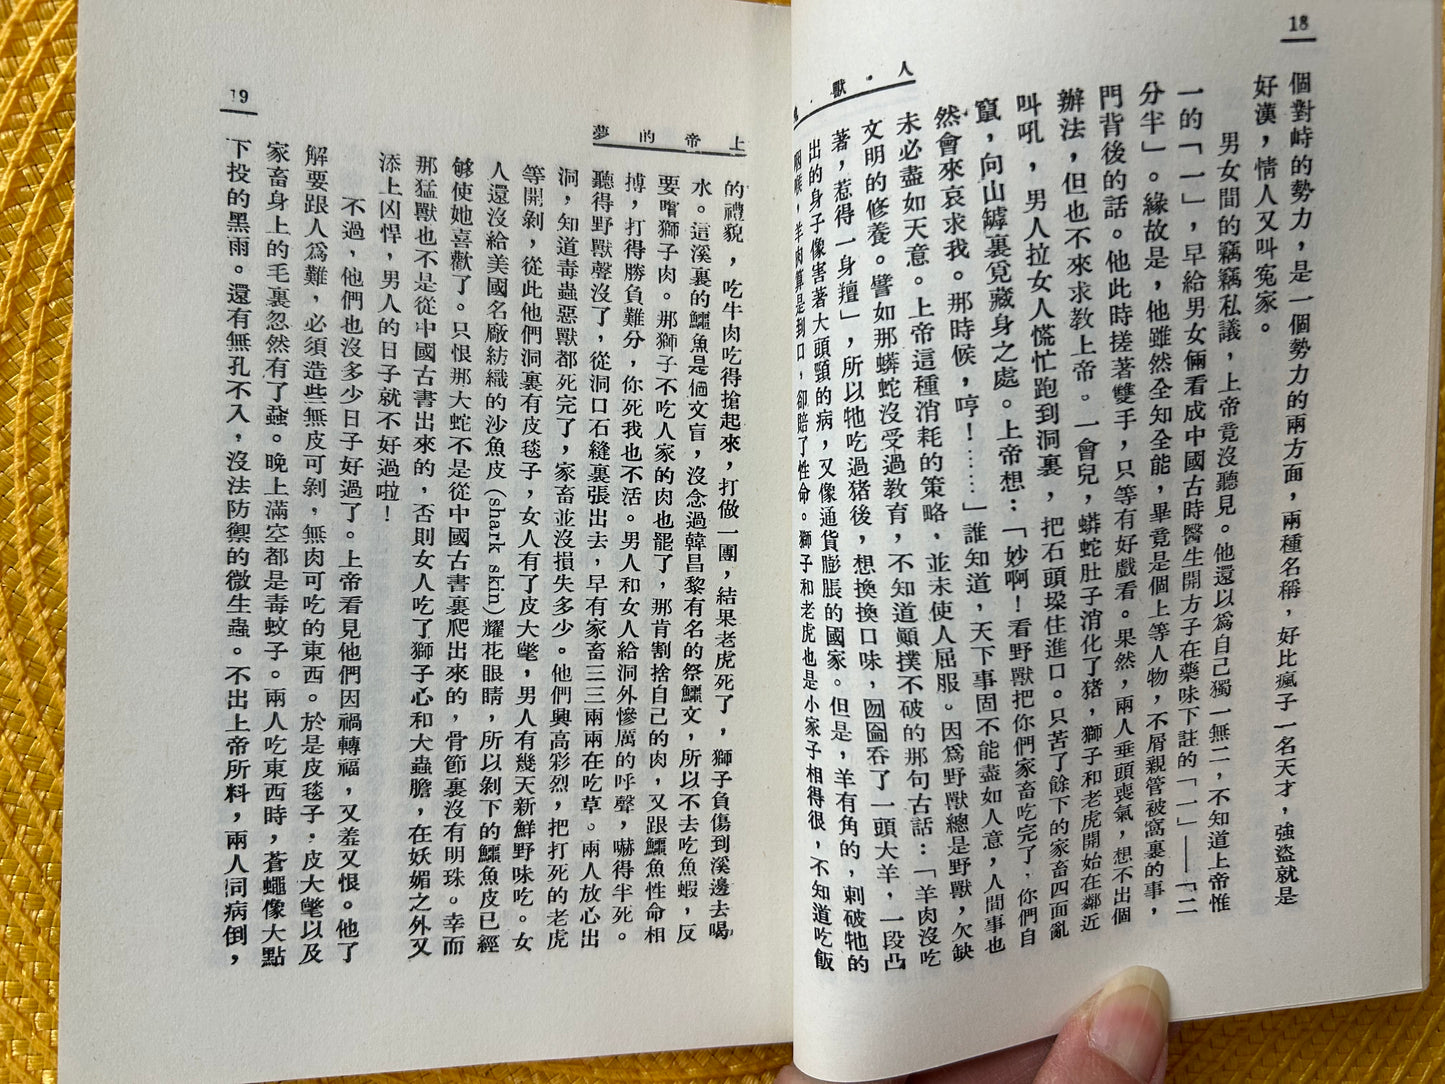 18
人·獸·鬼
個對峙的勢力，是一個勢力的兩方面，兩種名稱，好比瘋子一名天才，強盜就是
好漢，情人又叫寃家。
男女間的竊竊私議，上帝竟沒聽見。他還以爲自己獨一無二，不知道上帝惟
一的「一」，早給男女倆看成中國古時醫生開方子在藥味下註的「一」——「二
分半」。緣故是，他雖然全知全能，畢竟是個上等人物，不屑親管被窩裏的事，
門背後的話。他此時搓著雙手，只等有好戲看。果然，兩人垂頭喪氣，想不出個
辦法，但也不來求教上帝。一會兒，蟒蛇肚子消化了猪，獅子和老虎開始在鄰近
叫吼，男人拉女人慌忙跑到洞裏，把石頭垜住進口。只苦了餘下的家畜四面亂
竄，向山罅裏覓藏身之處。上帝想：「妙啊！看野獸把你們家畜吃完了，你們自
然會來哀求我。那時候，哼！……」誰知道，天下事固不能盡如人意，人間事也
未必盡如天意。上帝這種消耗的策略，並未使人屈服。因爲野獸總是野獸，欠缺
文明的修養。譬如那蟒蛇沒受過教育，不知道顚撲不破的那句古話：「羊肉沒吃
著，惹得一身羶」，所以牠吃過猪後，想換換口味，囫圇吞了一頭大羊，一段凸
出的身子像害著大頭頸的病，又像通貨膨脹的國家。但是，羊有角的，刺破牠的
咽喉，羊肉算是到口，卻賠了性命。獅子和老虎也是小家子相得很，不知道吃飯
上帝的夢
19
的禮貌，吃牛肉吃得搶起來，打做一團，結果老虎死了，獅子負傷到溪邊去喝
水。這溪裏的鱷魚是個文盲，沒念過韓昌黎有名的祭鱷文，所以不去吃魚蝦，反
要嚐獅子肉。那獅子不吃人家的肉也罷了，那肯割捨自己的肉，又跟鱷魚性命相
搏，打得勝負難分，你死我也不活。男人和女人給洞外慘厲的呼聲，嚇得半死。
聽得野獸聲沒了，從洞口石縫裏張出去，早有家畜三三兩兩在吃草。兩人放心出
洞，知道毒蟲惡獸都死完了，家畜並沒損失多少。他們興高彩烈，把打死的老虎
等開剝，從此他們洞裏有皮毯子，女人有了皮大氅，男人有幾天新鮮野味吃。女
人還沒給美國名廠紡織的沙魚皮(shark skin)耀花眼睛，所以剝下的鱷魚皮已經
够使她喜歡了。只恨那大蛇不是從中國古書裏爬出來的，骨節裏沒有明珠。幸而
那猛獸也不是從中國古書出來的，否則女人吃了獅子心和大蟲膽，在妖媚之外又
添上凶悍，男人的日子就不好過啦！
不過，他們也沒多少日子好過了。上帝看見他們因禍轉福，又羞又恨。他了
解要跟人爲難，必須造些無皮可剝，無肉可吃的東西。於是皮毯子，皮大氅以及
家畜身上的毛裏忽然有了蝨。晚上滿空都是毒蚊子。兩人吃東西時，蒼蠅像大點
下投的黑雨。還有無孔不入，沒法防禦的微生蟲。不出上帝所料，兩人同病倒，